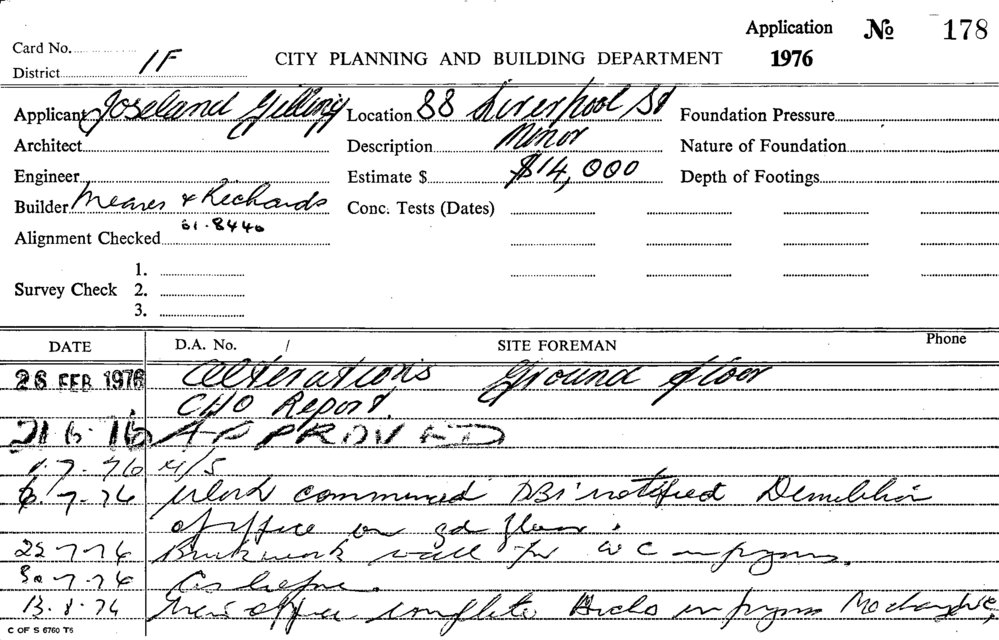 Application No 178
Card No. 1976
District 1F CITY PLANNING AND BUILDING DEPARTMENT
Applicant Joseland Gilling Location 88 Liverpool St Foundation Pressure
Architect Description Minor Nature of Foundation
Engineer Estimate $ $14,000 Depth of Footings
Builder Meares & Richards Conc. Tests (Dates)
61.8440
Alignment Checked
1.
Survey Check 2.
3.
DATE D.A. No. / SITE FOREMAN Phone
26 FEB 1976 Alterations Ground floor
CHO Report.
21 6 76 APPROVED
1.7.76 N/S
6.7.76 Work commenced DBI notified Demolition
of office on gd floor.
22-7-76 Brickwork wall for WC in progress.
30-7-76 As before.
13.8.76 New office complete in progress No change
C OF S 6760 T5